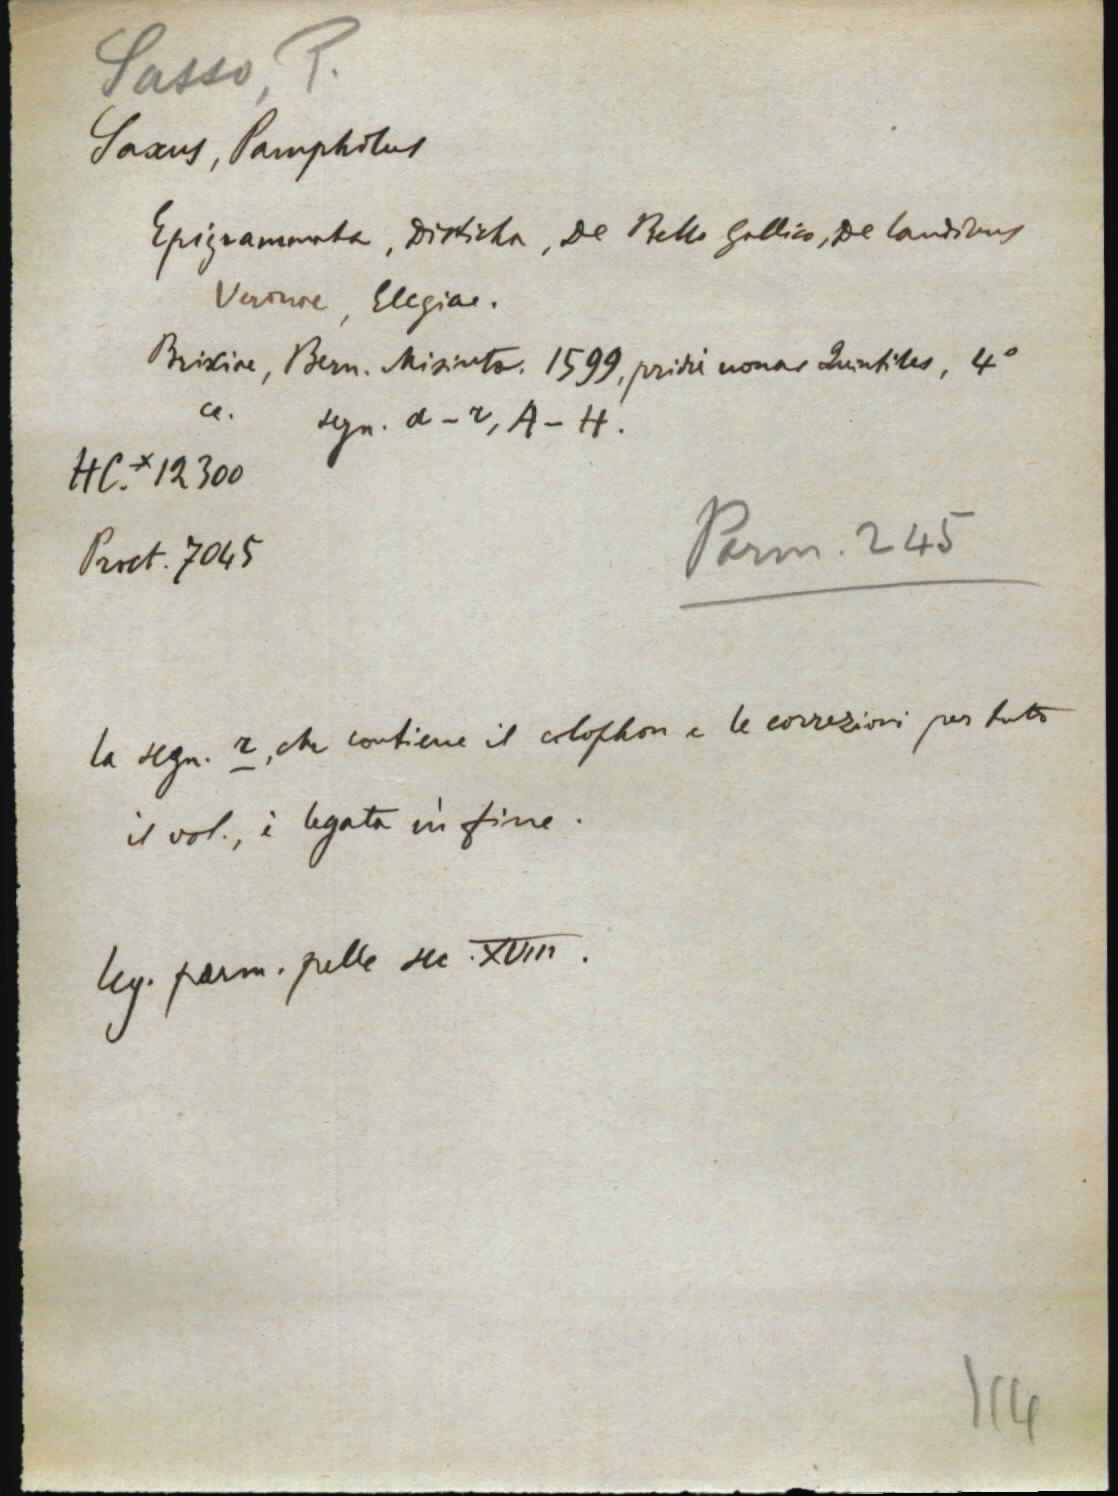 Sasso, P.
Saxus, Pamphilus
Epigrammata, Disticha, De Bello Gallico, De laudibus
Veronae, Elegiae.
Brixiae, Bern. Misinta. 1599, pridie nonas Quintiles, 4°
ca. segn. a-r, A-H.
HC.* 12300
Proct. 7045
Parm. 245
La segn. r, che contiene il colophon e le correzioni per tutto
il vol., è legata in fine.
Leg. parm. pelle sec. XVIII.
114